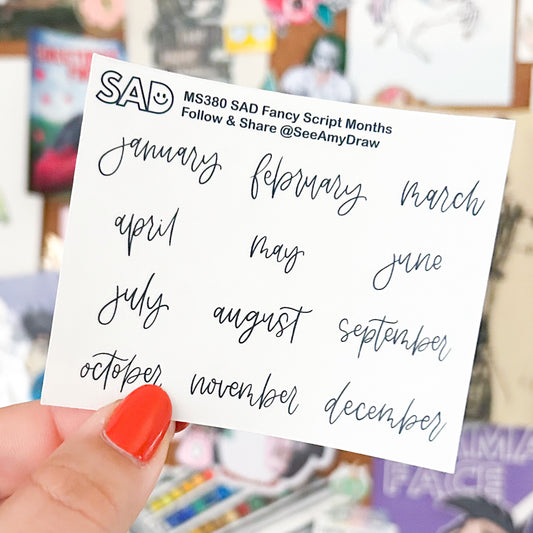 SAD
MS380 SAD Fancy Script Months
Follow & Share @SeeAmyDraw
january february march
april may june
july august september
october november december
FACE